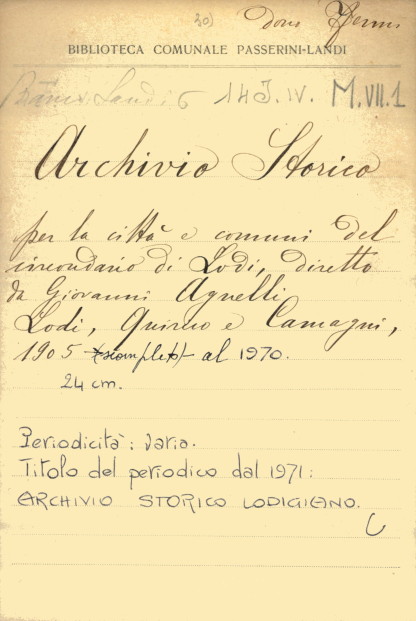 30)
BIBLIOTECA COMUNALE PASSERINI-LANDI
Landi 6 14J.IV. M.VII.1
Archivio Storico
per la città e comuni del
circondario di Lodi, diretto
da Giovanni Agnelli
Lodi, Quirico e Camagni,
1905 (incompleto) al 1970.
24 cm.
Periodicità: varia.
Titolo del periodico dal 1971:
ARCHIVIO STORICO LODIGIANO.